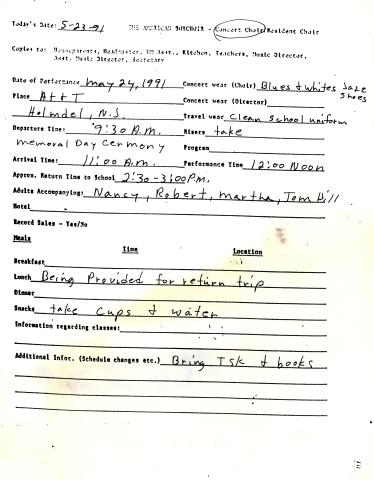 Today's Date: 5-23-91 THE AMERICAN BOYCHOIR - Concert Choir/Resident Choir
Copies to: Houseparents, Headmaster, HM Asst., Kitchen, Teachers, Music Director,
Asst. Music Director, Secretary
Date of Performance May 24, 1991 Concert wear (Choir) Blues & Whites Jazz Shoes
Place AT+T Concert wear (Director)
Holmdel, N.J. Travel wear Clean School uniform
Departure Time: 9:30 A.M. Risers take
Memoral Day Cermony Program
Arrival Time: 11:00 A.M. Performance Time 12:00 Noon
Approx. Return Time to School 2:30-3:00 P.M.
Adults Accompanying: Nancy, Robert, Martha, Tom Hill
Hotel -
Record Sales - Yes/No
Meals
Time Location
Breakfast
Lunch Being Provided for return trip
Dinner
Snacks take cups & water
Information regarding classes:
Additional Infor. (Schedule changes etc.) Bring TSK & books